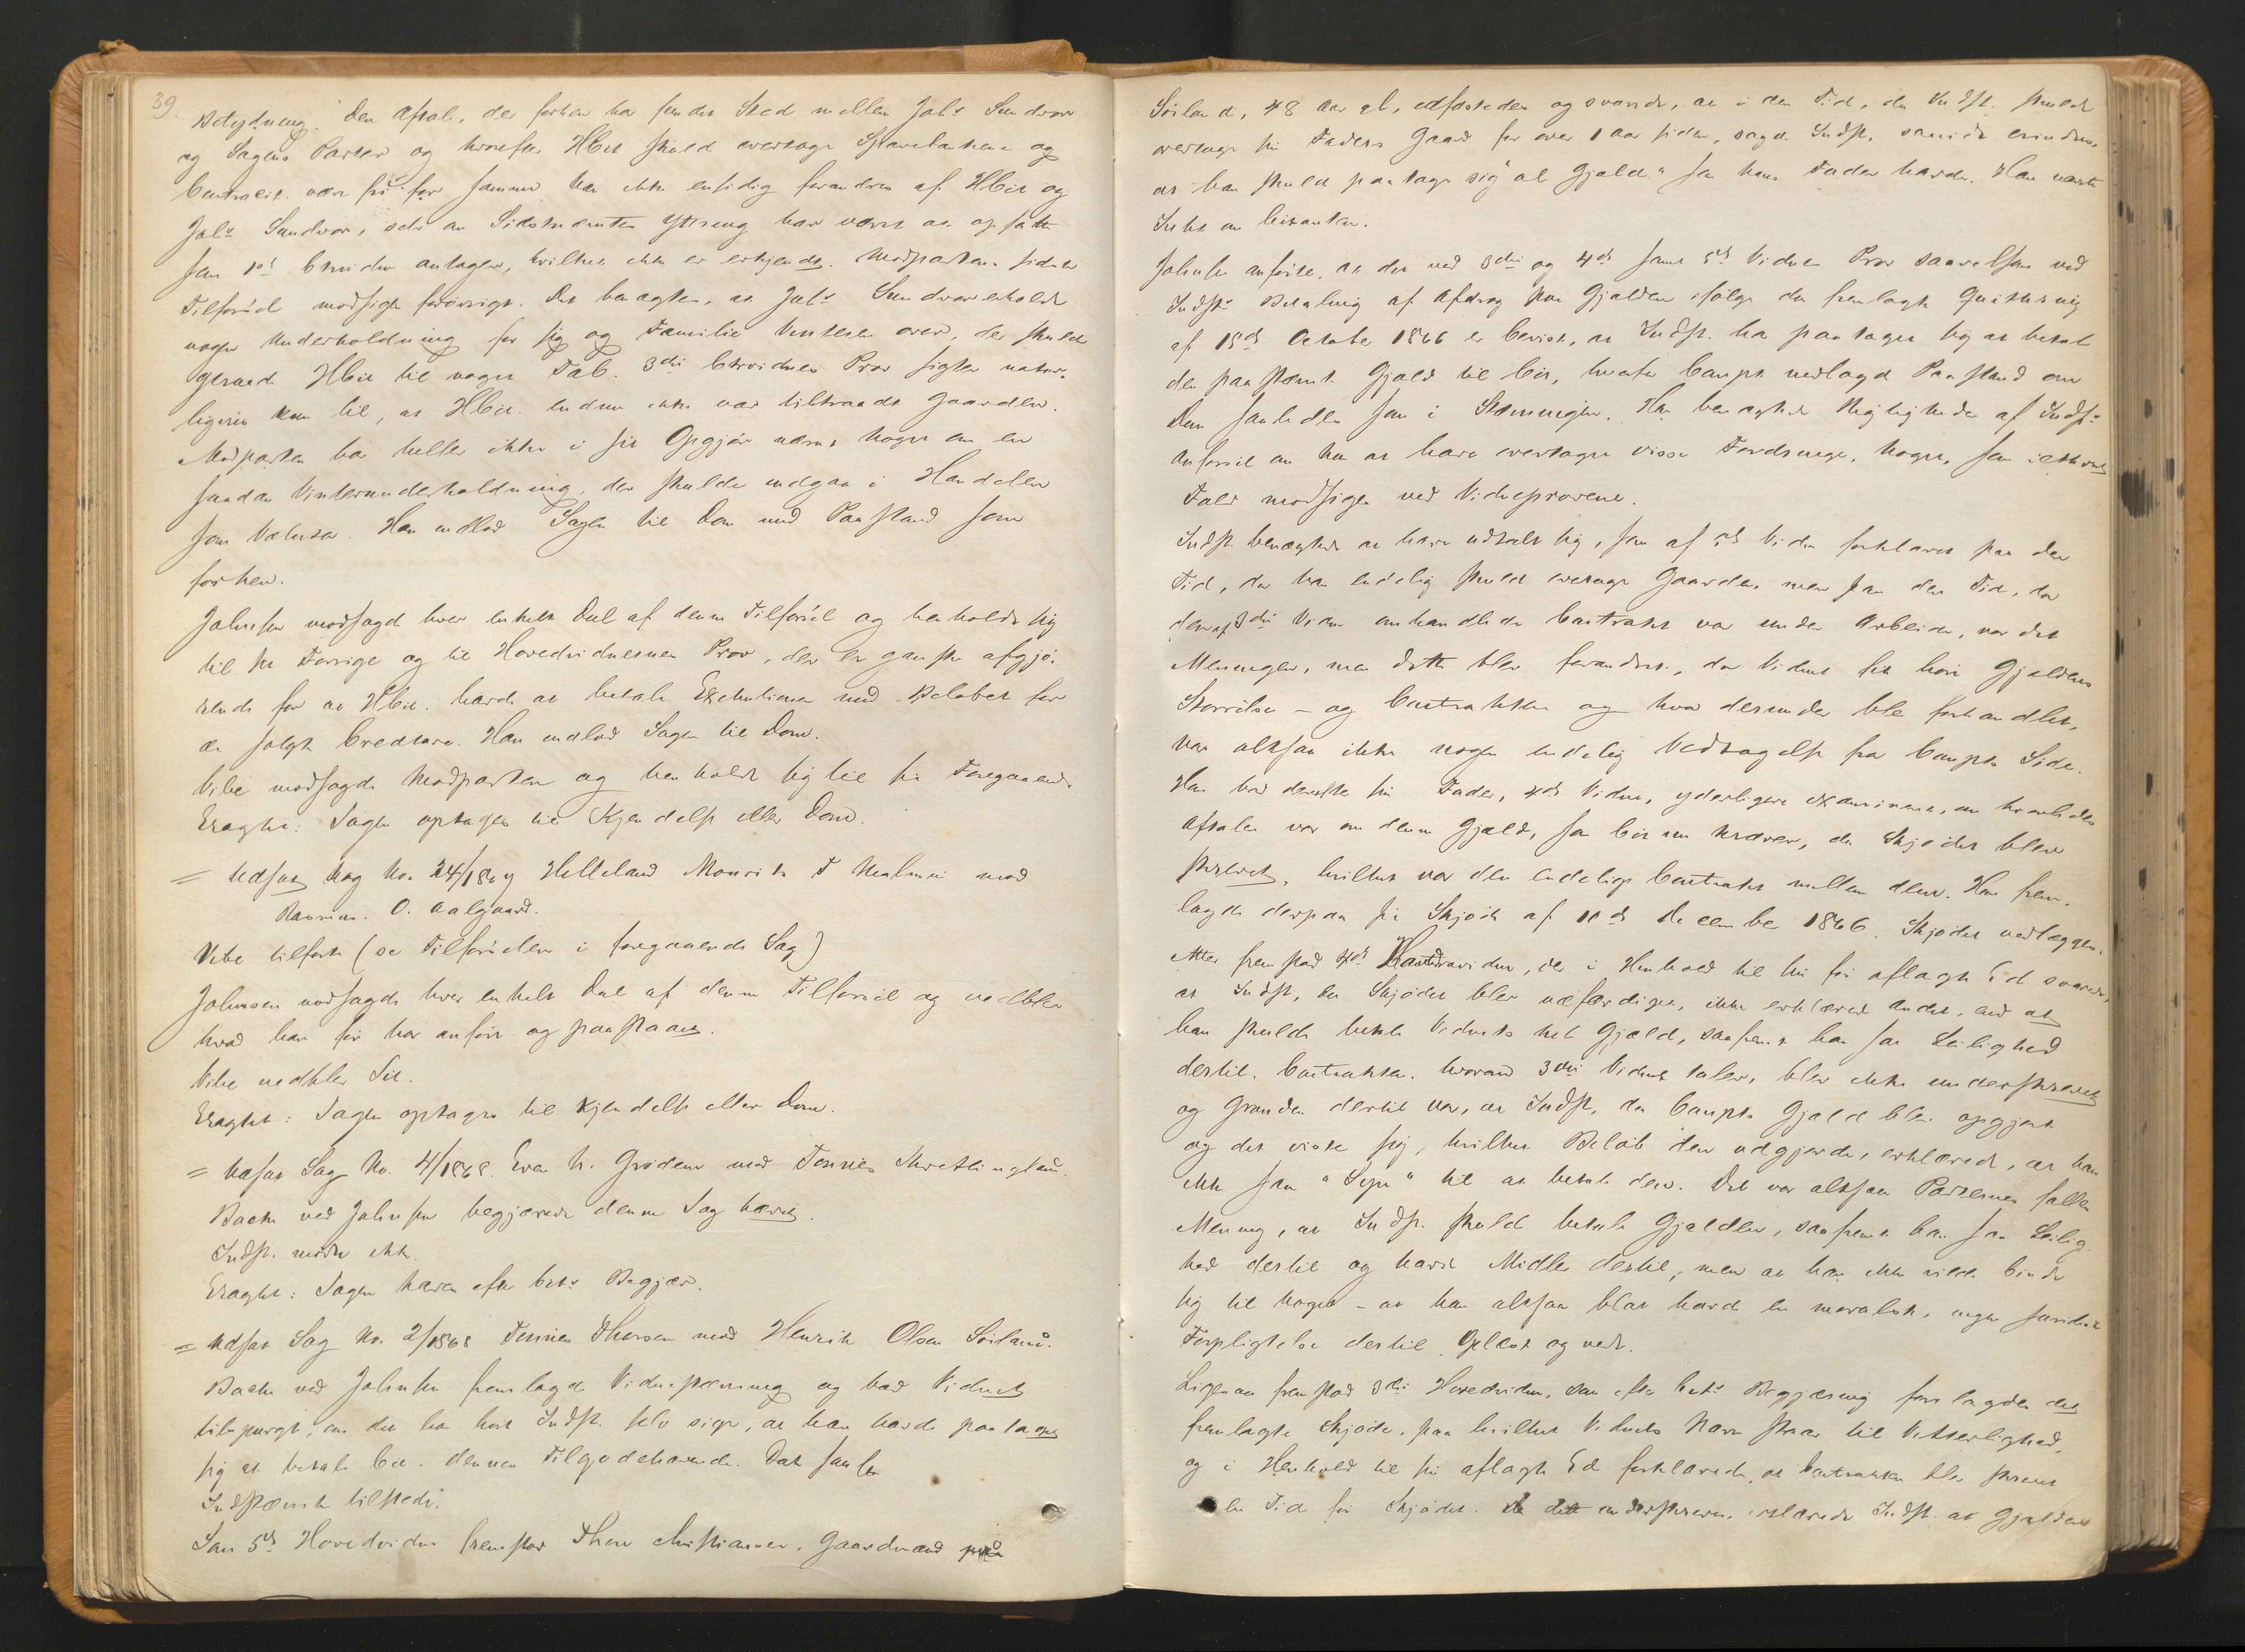 39.
Betydning. Den Aftale, der forhen har fundet Sted mellem Johs Sundvor
og Sagens Parter og hvorefter HCit skulde overtage Sparebanken og
Contracit. være fri for samme kan ikke ensidig forandres af HCit og
Johs Sundvor, selv om Sidstnævntes Yttring har været at opfatte
som 1ste Cvidne antager, hvilket ikke er erkjendt. Modpartens sidste
Tilførsel modsiges forøvrigt. Det benægtes, at Johs Sundvor erholdt
nogen Underholdning for sig og Familie Vinteren over, der skulde
geraade HCit til noget Tab. 3die Cvidnes Prov sigter natur-
ligvis kun til, at HCit. endnu ikke var tiltraadt Gaarden.
Modparten har heller ikke i sit Opgjør nævnt noget om en
saadan Vinterunderholdning, der skulde indgaa i Handelen
som Valuta. Han indlod Sagen til Dom med Paastand som
forhen.
Johnsen modsagde hver enkelt Deel af denne Tilførsel og henholdt sig
til sit Forrige og til Hovedvidnernes Prov, der er ganske afgjø-
rende for at HCit. havde at betale Exekutionen med Beløbet for
de solgte Creature. Han indlod Sagen til Dom.
Vibe modsagde Modparten og henholdt sig til sit Foregaaende.
Eragtet: Sagen optages til Kjendelse eller Dom.
= Udsat Sag No. 24/1867 Helleland Mourits T Malmin mod
Rasmus O. Aalgaard.
Vibe tilførte (se Tilførslen i foregaaende Sag)
Johnsen modsagde hver enkelt Deel af denne Tilførsel og vedblev
hvad han før har anført og paastaaet.
Vibe vedblev Sit.
Eragtet: Sagen optages til Kjendelse eller Dom.
= Udsat Sag No. 4/1868. Even H. Grødem mod Tønnes Skretlingland.
Bache ved Johnsen begjærede denne Sag hævet.
Indst. mødte ikke.
Eragtet: Sagen hæves efter Cits Begjær.
= Udsat Sag No. 2/1868 Tønnes Thorsen mod Henrik Olsen Søiland.
Bache ved Johnsen fremlagde Vidnestævning og bad Vidnet
tilspurgt, om det har hørt Indst. selv sige, at han havde paataget
sig at betale Cit. dennes Tilgodehavende. Dat samler
Indstævnte tilstede.
Som 5te Hovedvidne fremstod Thore Christiansen, Gaardmand paa
Søiland, 48 Aar gl., edfæstedes og svarede, at i den Tid, da Indst. skulde
overtage sin Faders Gaard for over 1 Aar siden, sagde Indst., saavidt erindres,
at han skulde paatage sig "al Gjæld" som hans Fader havde. Han nævnte
Intet om Citanten.
Johnsen anførte, at det ved 3die og 4de samt 5te Vidnes Prov saavelsom ved
Indsts Betaling af Afdrag paa Gjælden ifølge den fremlagte Qvittering
af 15de October 1866 er bevist, at Indst. har paataget sig at betale
den paastævnte Gjæld til Cit, hvorfor Compt nedlagde Paastand om
Dom saaledes som i Stævningen. Han benægtede Rigtigheden af Indsts
Anførsel om kun at have overtaget visse Fordringer, noget, som i ethvert
Fald modsiges ved Vidneprovene.
Indst. benægtede at have udtalt sig, som af 5te Vidne forklaret paa den
Tid, da han endelig skulde overtage Gaarden, men paa den Tid, da
den af 3die Vidne omhandlede Contrakt var under Arbeide, var det
Meningen, men dette blev forandret, da Vidnet fik høre Gjældens
Størrelse – og Contrakten og hvad derunder blev forhandlet,
var altsaa ikke nogen endelig Vedtagelse fra Compts Side.
Han bad derefter sin Fader, 4de Vidne, yderligere examineret, om hvorledes
Aftalen var om denne Gjæld, som Cit nu kræver, da Skjødet blev
skrevet, hvilket var den endelige Contrakt mellem dem. Han frem-
lagde derpaa sit Skjøde af 11de December 1866. Skjødet vedlægges.
Atter fremstod 4de Hovedvidne, der i Henhold til sin før aflagte Ed svarede,
at Indst, da Skjødet blev udfærdiget, ikke erklærede Andet, end at
han skulde betale Vidnets hele Gjæld, saafremt han saa Leilighed
dertil. Contrakten, hvorom 3die Vidne taler, blev ikke underskrevet
og Grunden dertil var, at Indst, da Compts Gjæld blev opgjort
og det viste sig, hvilket Beløb den udgjorde, erklærede, at han
ikke saa "Sejn" til at betale den. Det var altsaa Parternes fælles
Mening, at Indst. skulde betale Gjælden, saafremt han saa Leilig-
hed dertil og havde Midler dertil, men at han ikke vilde binde
sig til Noget – at han altsaa blot havde en moralsk, ingen juridisk
Forpligtelse dertil. Oplæst og vedt.
Ligesaa fremstod 3die Hovedvidne, som efter Cits Begjæring forelagdes det
fremlagte Skjøde, paa hvilket Vidnets Navn staar til Vitterlighed,
og i Henhold til sin aflagte Ed forklarede, at Contrakten blev skrevet
en Tid før Skjødet. Da det underskreves, erklærede Indst. at Gjælden